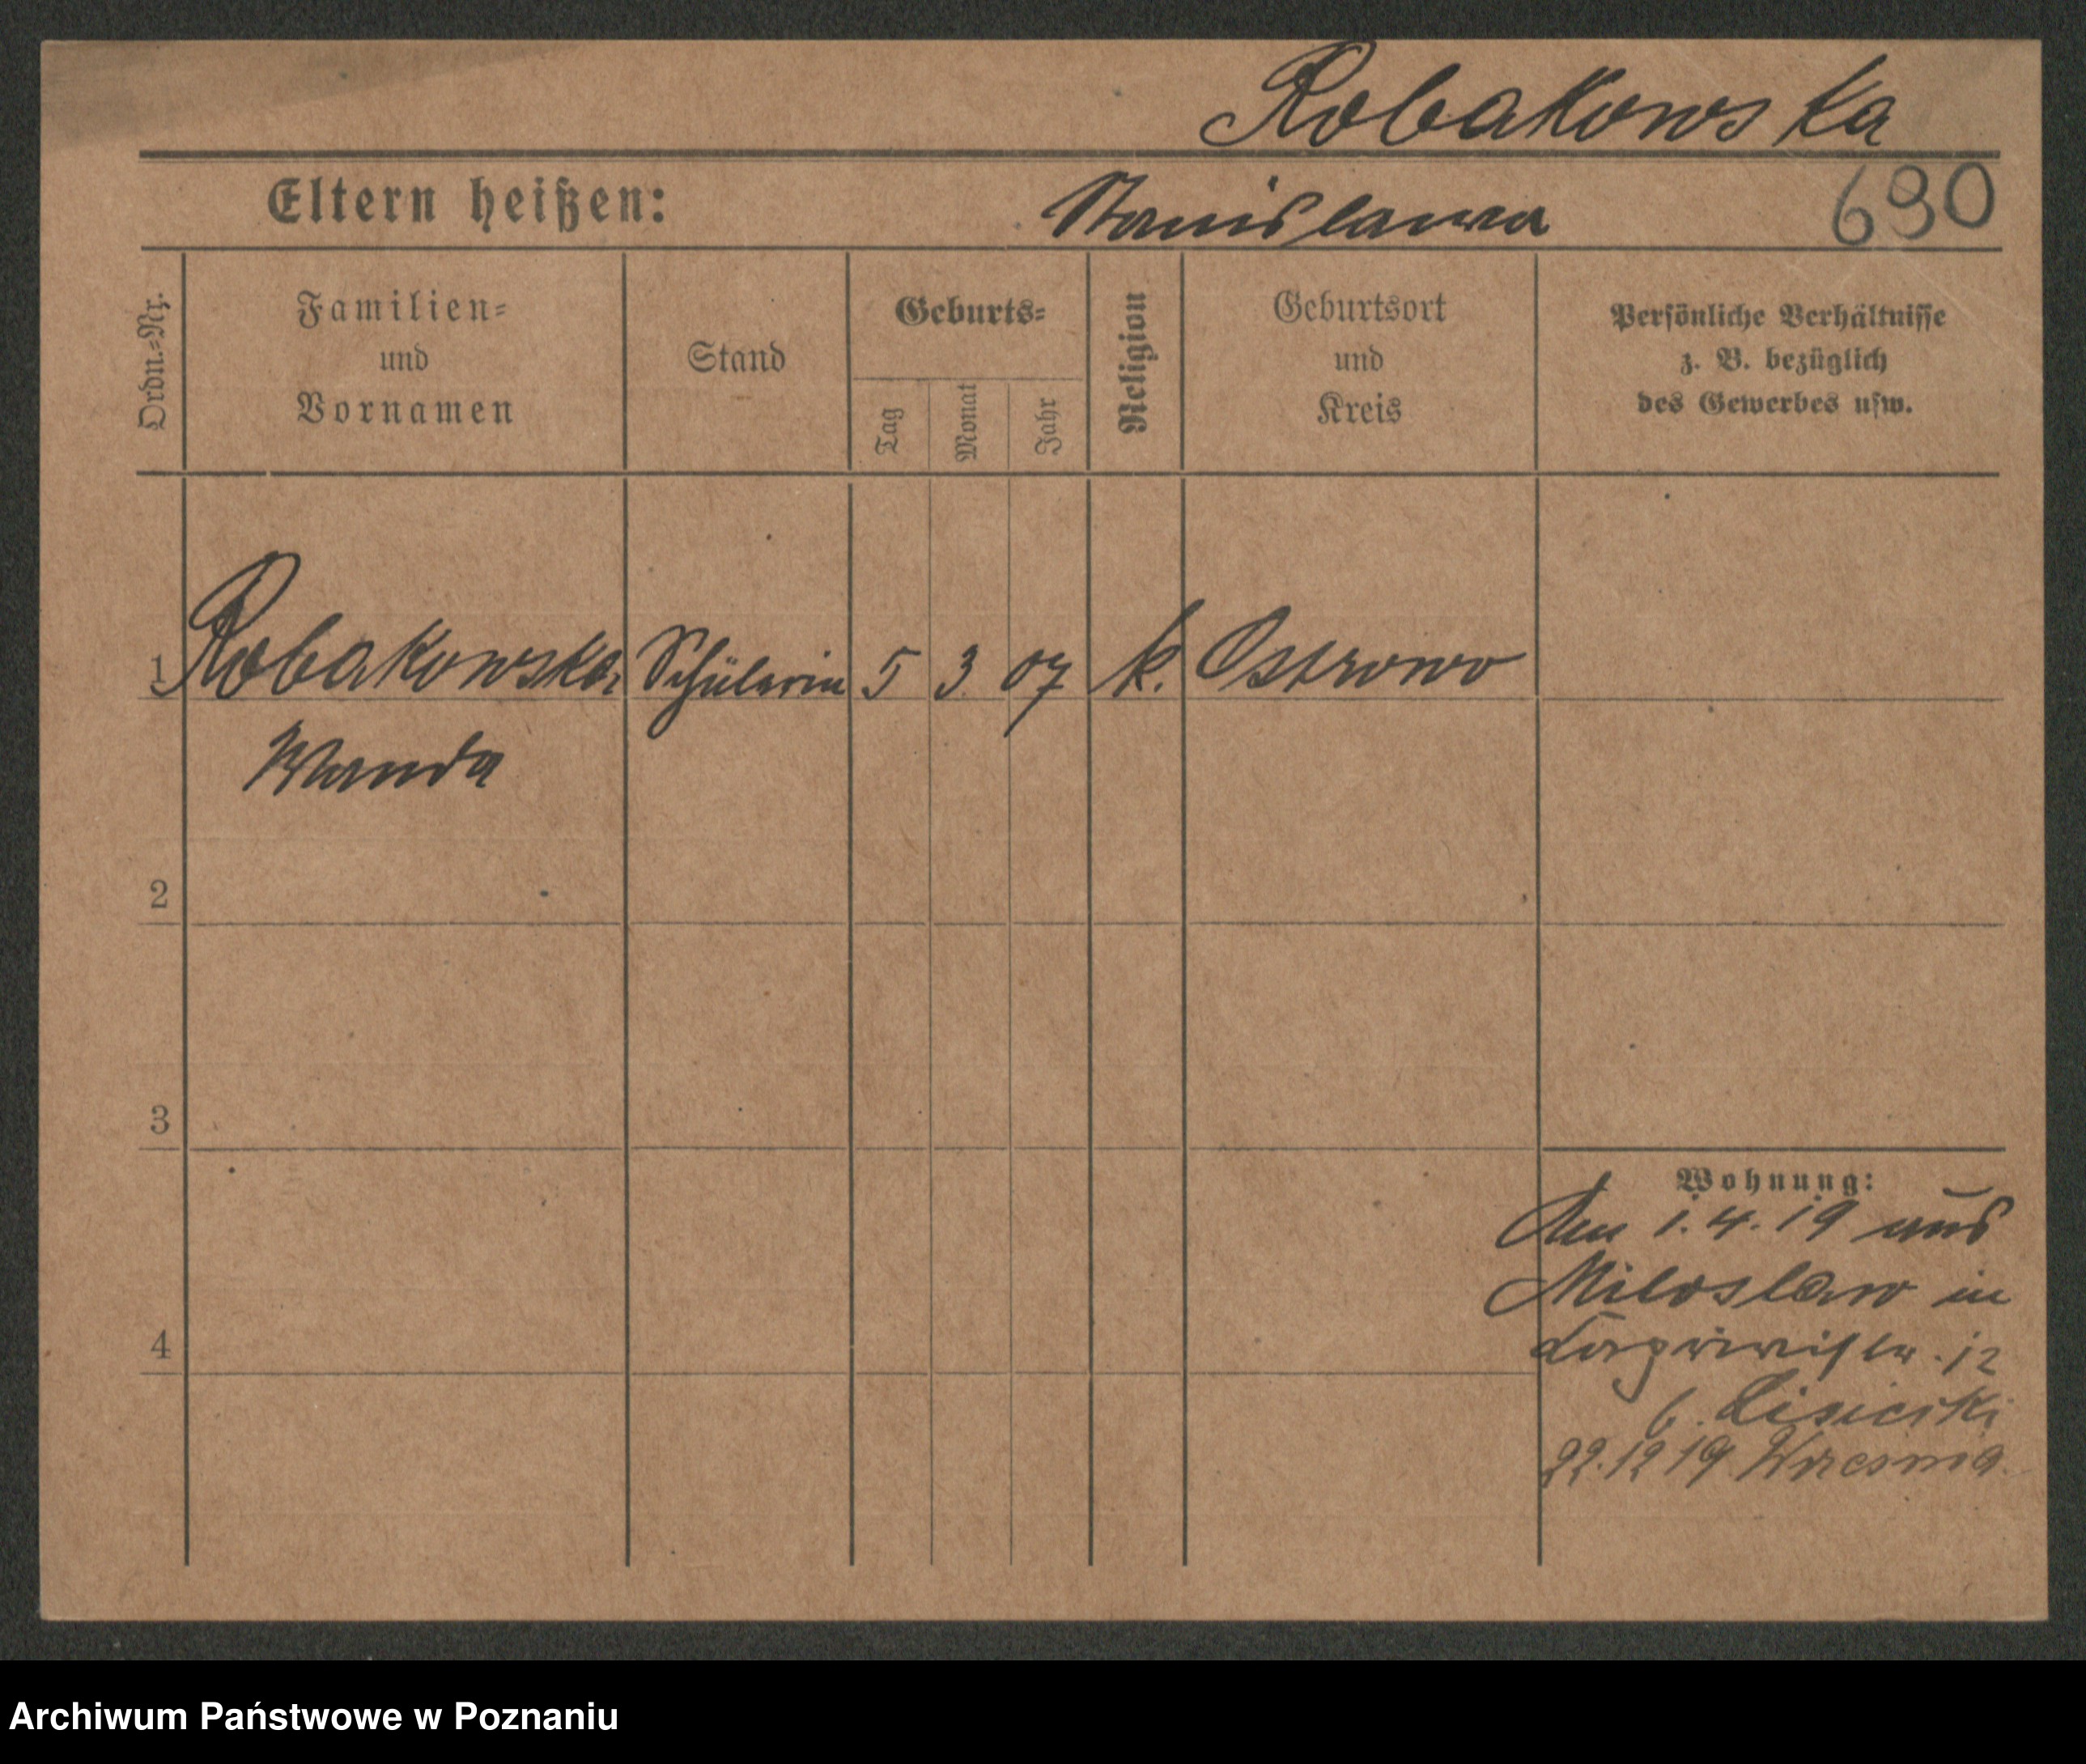 Robakowska
Eltern heißen: Stanislawa 690
Ordn.-Nr. Familien- und Vornamen Stand Geburts- Tag Monat Jahr Religion Geburtsort und Kreis Persönliche Verhältnisse z. B. bezüglich des Gewerbes usw.
1 Robakowska, Schülerin 5 3. 07 k. Ostrowo
Wanda
2
3
Wohnung:
Den 1.4.19 aus
Miloslaw in
4
12
b. Lisiecki
22.12 19 Wrzesnia
Archiwum Państwowe w Poznaniu